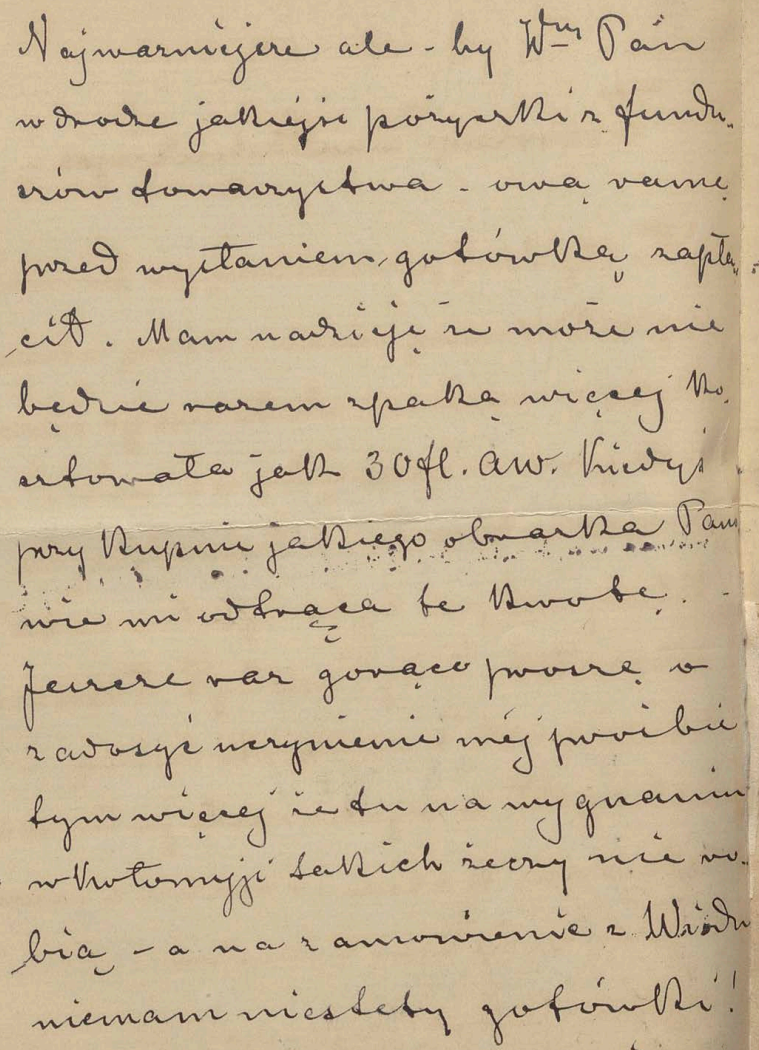 Najważniejsze ale - by Wny Pan
w drodze jakiejsi pożyczki z fundu-
szów towarzystwa - ową ramę
przed wysłaniem gotówką zapła-
cił. Mam nadzieję że może nie
będzie razem z paką więcej ko-
sztowała jak 30 fl. aw. Kiedyś
przy kupnie jakiego obrazka Pano
wie mi odtrącą te kwotę. -
Jeszcze raz gorąco proszę o
zadosyć uczynienie méj prośbie
tym więcej że tu na wygnaniu
w Kołomyji takich żeczy nie ro-
bią - a na zamówienie z Wiednia
niemam niestety gotówki!